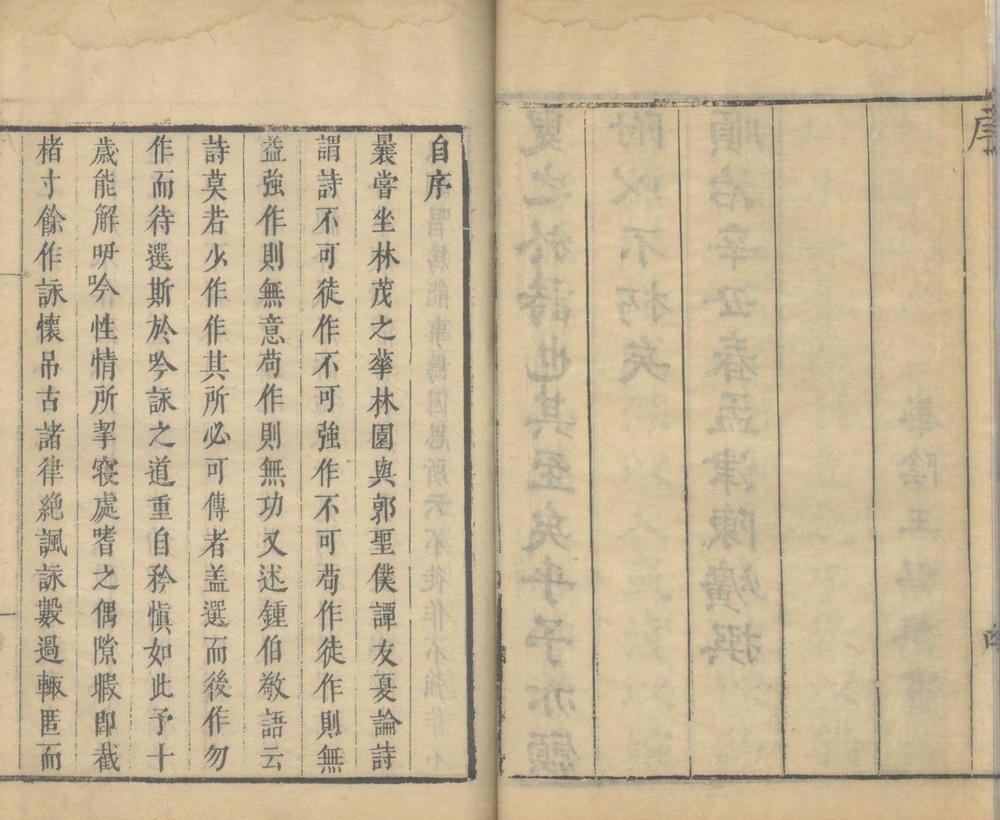 序
自序
曩嘗坐林茂之華林園與郭聖僕譚友夏論詩
謂詩不可徒作不可強作不可苟作徒作則無
益強作則無意苟作則無功又述鍾伯敬語云
詩莫若少作作其所必可傳者盖選而後作勿
作而待選斯於吟詠之道重自矜愼如此予十
歲能解吚吟性情所挐寢處嗜之偶隙暇卽截
楮寸餘作詠懷吊古諸律絶諷詠數過輙匿而